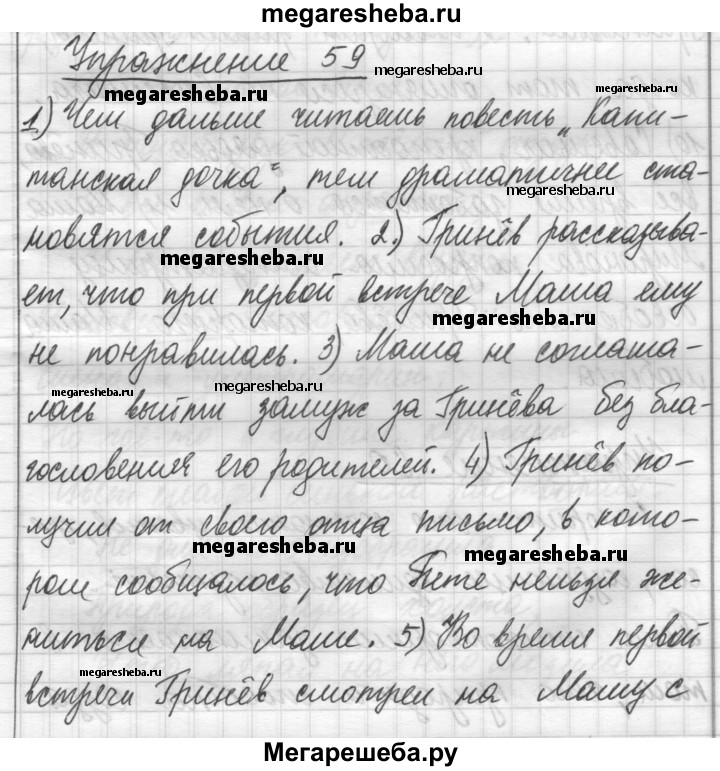 megaresheba.ru
Упражнение 59
megaresheba.ru
megaresheba.ru megaresheba.ru
1) Чем дальше читаешь повесть „Капи-
танская дочка“, тем драматичнее ста-
megaresheba.ru
новятся события. 2) Гринёв рассказыва-
megaresheba.ru
ет, что при первой встрече Маша ему
megaresheba.ru
не понравилась. 3) Маша не соглаша-
megaresheba.ru megaresheba.ru
лась выйти замуж за Гринёва без бла-
гословения его родителей. 4) Гринёв по-
лучил от своего отца письмо, в кото-
megaresheba.ru megaresheba.ru
ром сообщалось, что Пете нельзя же-
ниться на Маше. 5) Во время первой
megaresheba.ru
встречи Гринёв смотрел на Машу с
Мегарешеба.ру